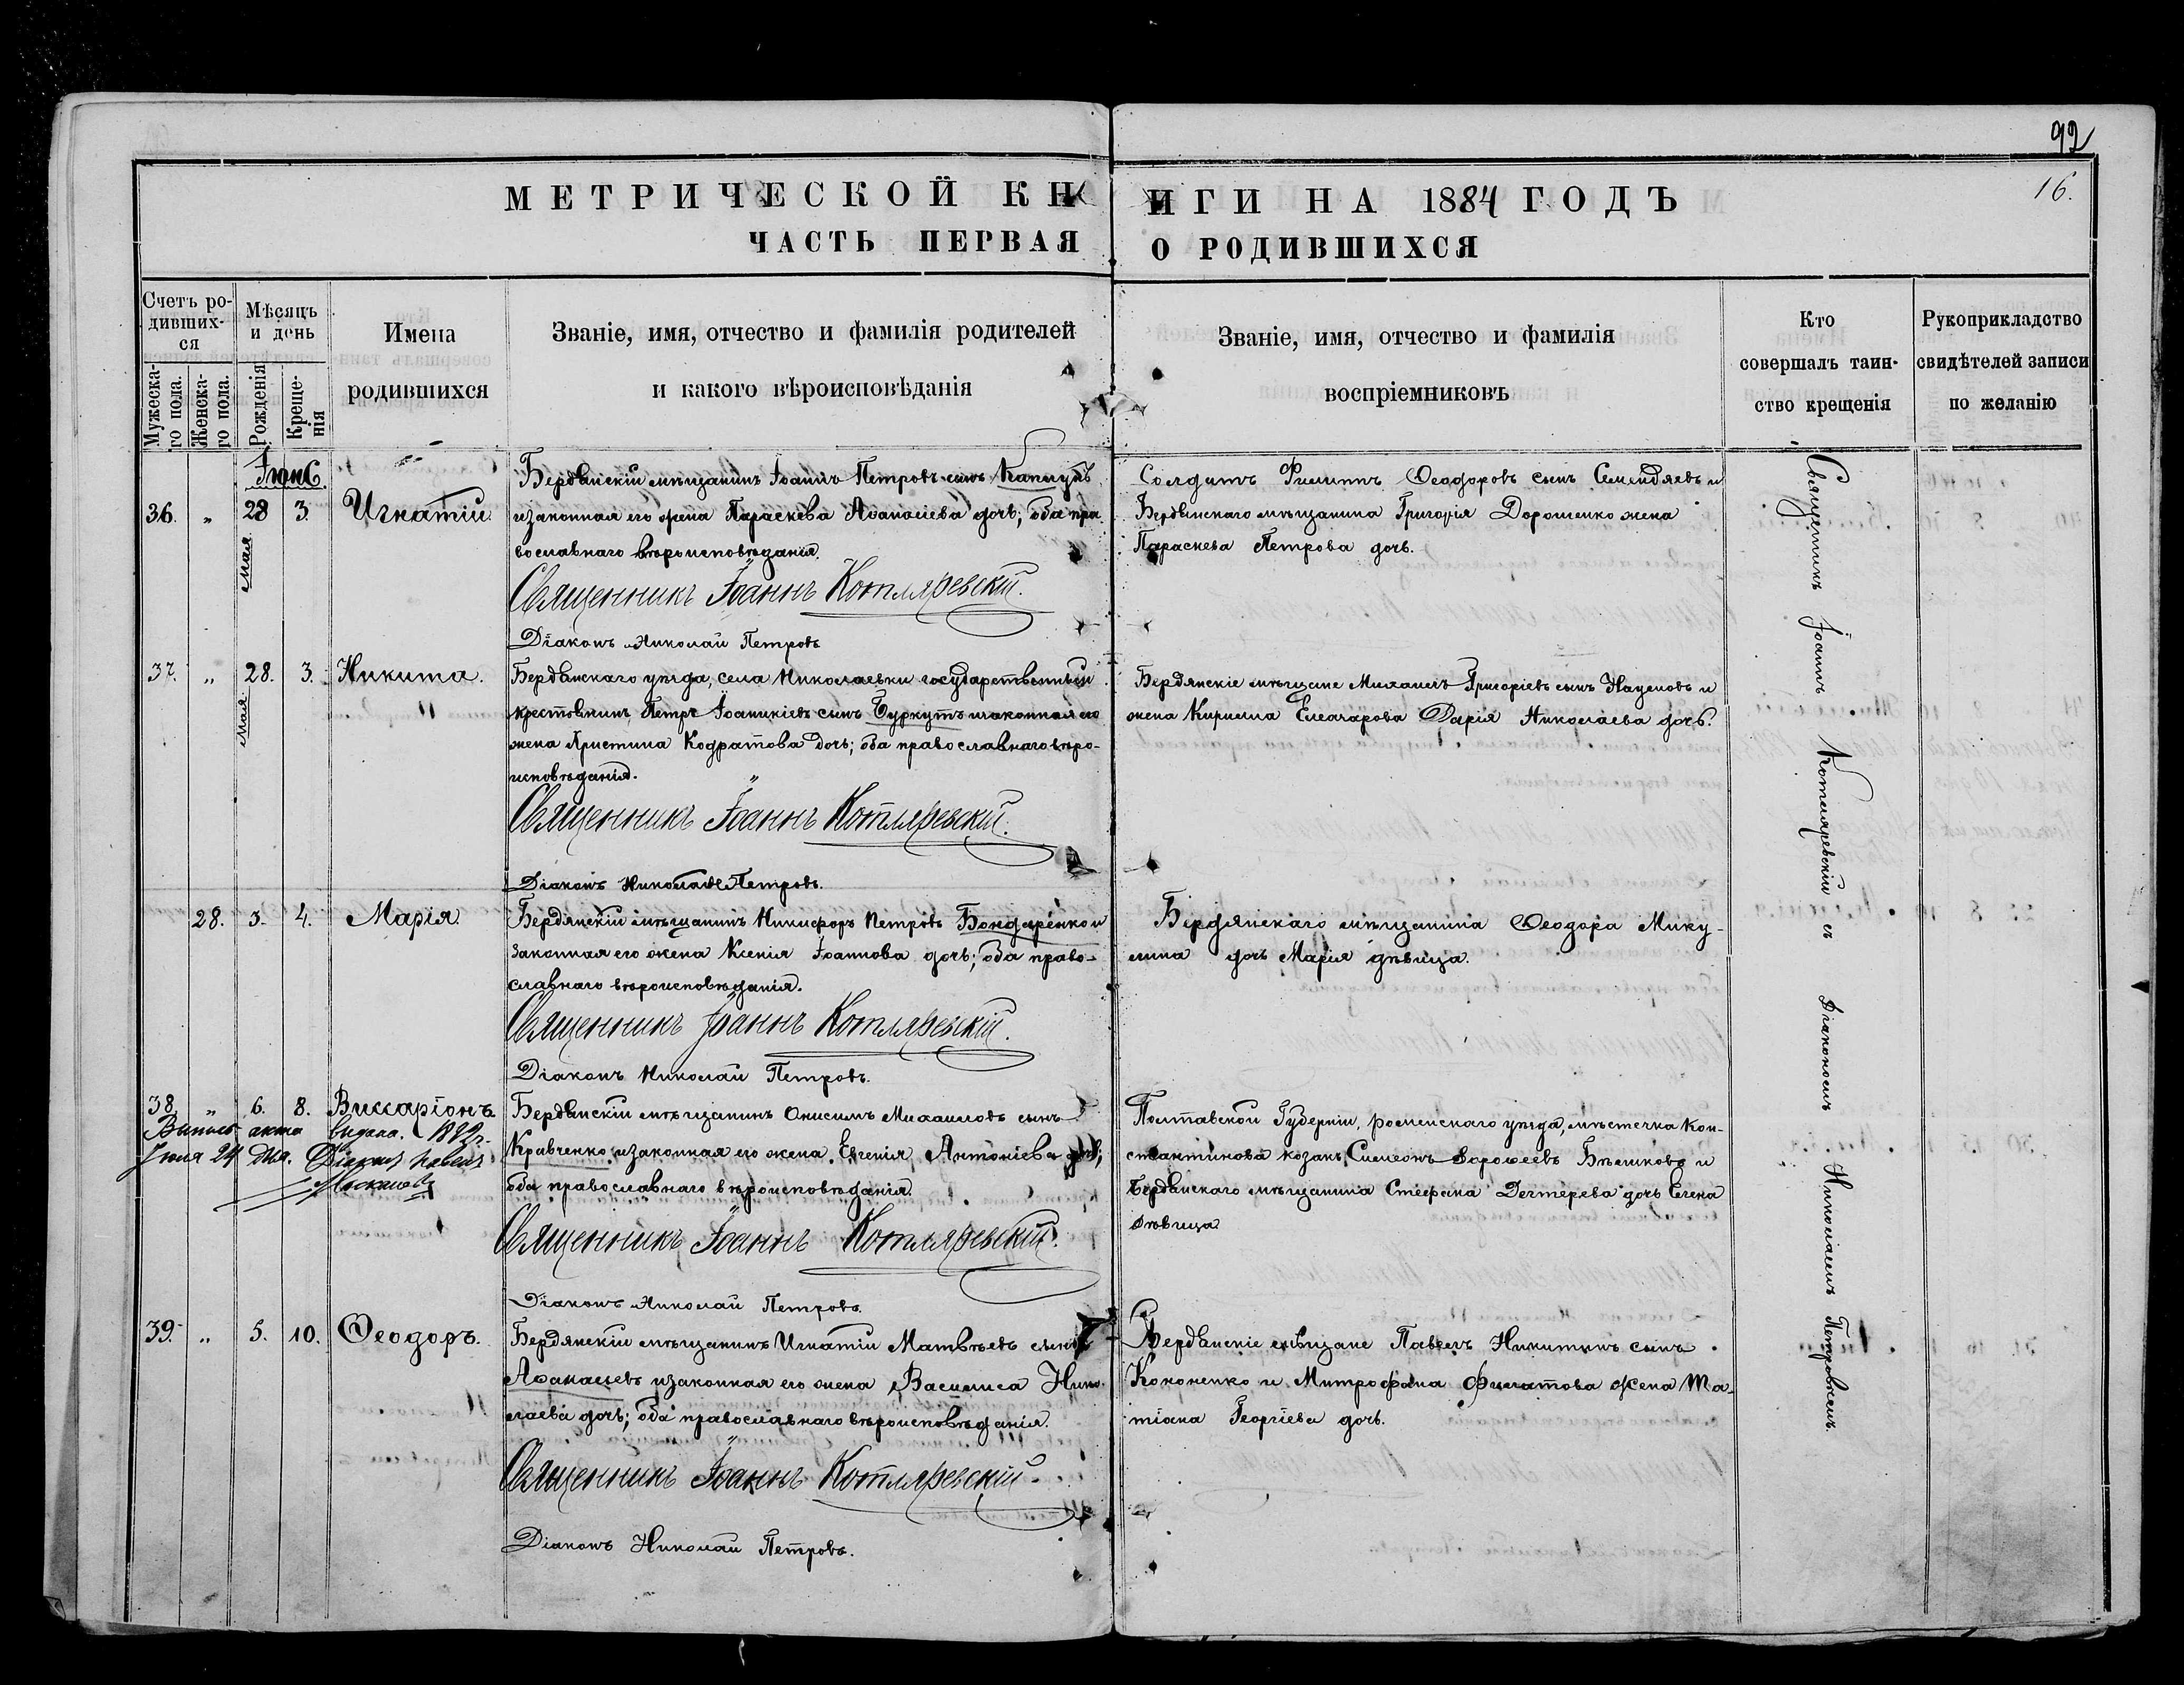 92
16.
МЕТРИЧЕСКОЙ КНИГИ НА 1884 ГОДЪ
ЧАСТЬ ПЕРВАЯ О РОДИВШИХСЯ
Счетъ ро-
дивших-
ся
Мужеска-
го пола.
Женска-
го пола.
Мѣсяцъ
и день
Рожденія
Креще-
нія
Имена
родившихся
Званіе, имя, отчество и фамилія родителей
и какого вѣроисповѣданія
Званіе, имя, отчество и фамилія
воспріемниковъ
Кто
совершалъ таин-
ство крещенія
Рукоприкладство
свидѣтелей записи
по желанію
36. „ 28 3. Игнатій
мая
Бердянскій мѣщанинъ Іоаннъ Петровъ сынъ
изаконная его жена Параскева Аѳанасіева дочь; оба пра
вославнаго вѣроисповѣданія.
Священникъ Іоаннъ Котляревскій.
Діаконъ Николай Петровъ
Солдатъ Филиппъ Ѳеодоровъ сынъ Семендяевъ и
Бердянскаго мѣщанина Григорія Дорошенко жена
Параскева Петрова дочь.
37. „ 28. 3. Никита.
мая
Бердянскаго уѣзда, села Николаевки государственный
крестьянинъ Петръ Іоанникіевъ сынъ Буркутъ изаконная его
жена Христина Кодратова дочь; оба православнаго вѣро-
исповѣданія.
Священникъ Іоаннъ Котляревскій.
Діаконъ Николай Петровъ.
Бердянскіе мѣщане Михаилъ Григоріевъ сынъ Науеновъ и
жена Кирилла Елеазарова Дарія Николаева дочь.
28. 3. 4. Марія
Бердянскій мѣщанинъ Никифоръ Петровъ Бондаренко и
законная его жена Ксенія Іоаннова дочь; оба право-
славнаго вѣроисповѣданія.
Священникъ Іоаннъ Котляревскій.
Діаконъ Николай Петровъ.
Бердянскаго мѣщанина Ѳеодора Мику-
лина дочь Марія дѣвица.
38. „ 6. 8. Виссаріонъ
Выпись акта выдана. 1892г.
Іюля 24 дня. Діаконъ Павелъ
Бердянскій мѣщанинъ Онисимъ Михаиловъ сынъ
Кравченко изаконная его жена Евгенія Антоніева дочь;
оба православнаго вѣроисповѣданія.
Священникъ Іоаннъ Котляревскій.
Діаконъ Николай Петровъ.
Полтавской Губерніи, роменскаго уѣзда, мѣстечка Кон-
стантинова козакъ Симеонъ Дороѳеевъ Бѣликовъ и
Бердянскаго мѣщанина Стефана Дегтерева дочь Елена
дѣвица
39. „ 5. 10. Ѳеодоръ.
Бердянскій мѣщанинъ Игнатій Матвѣевъ сынъ
Аѳанасіевъ изаконная его жена Василиса Нико-
лаева дочь; оба православнаго вѣроисповѣданія.
Священникъ Іоаннъ Котляревскій.
Діаконъ Николай Петровъ.
Бердянскіе мѣщане Павелъ Никитинъ сынъ
Кононенко и Митрофана Филатова жена Та-
тіана Георгіева дочь.
Священникъ Іоаннъ Котляревскій съ Діакономъ Николаемъ Петровымъ.